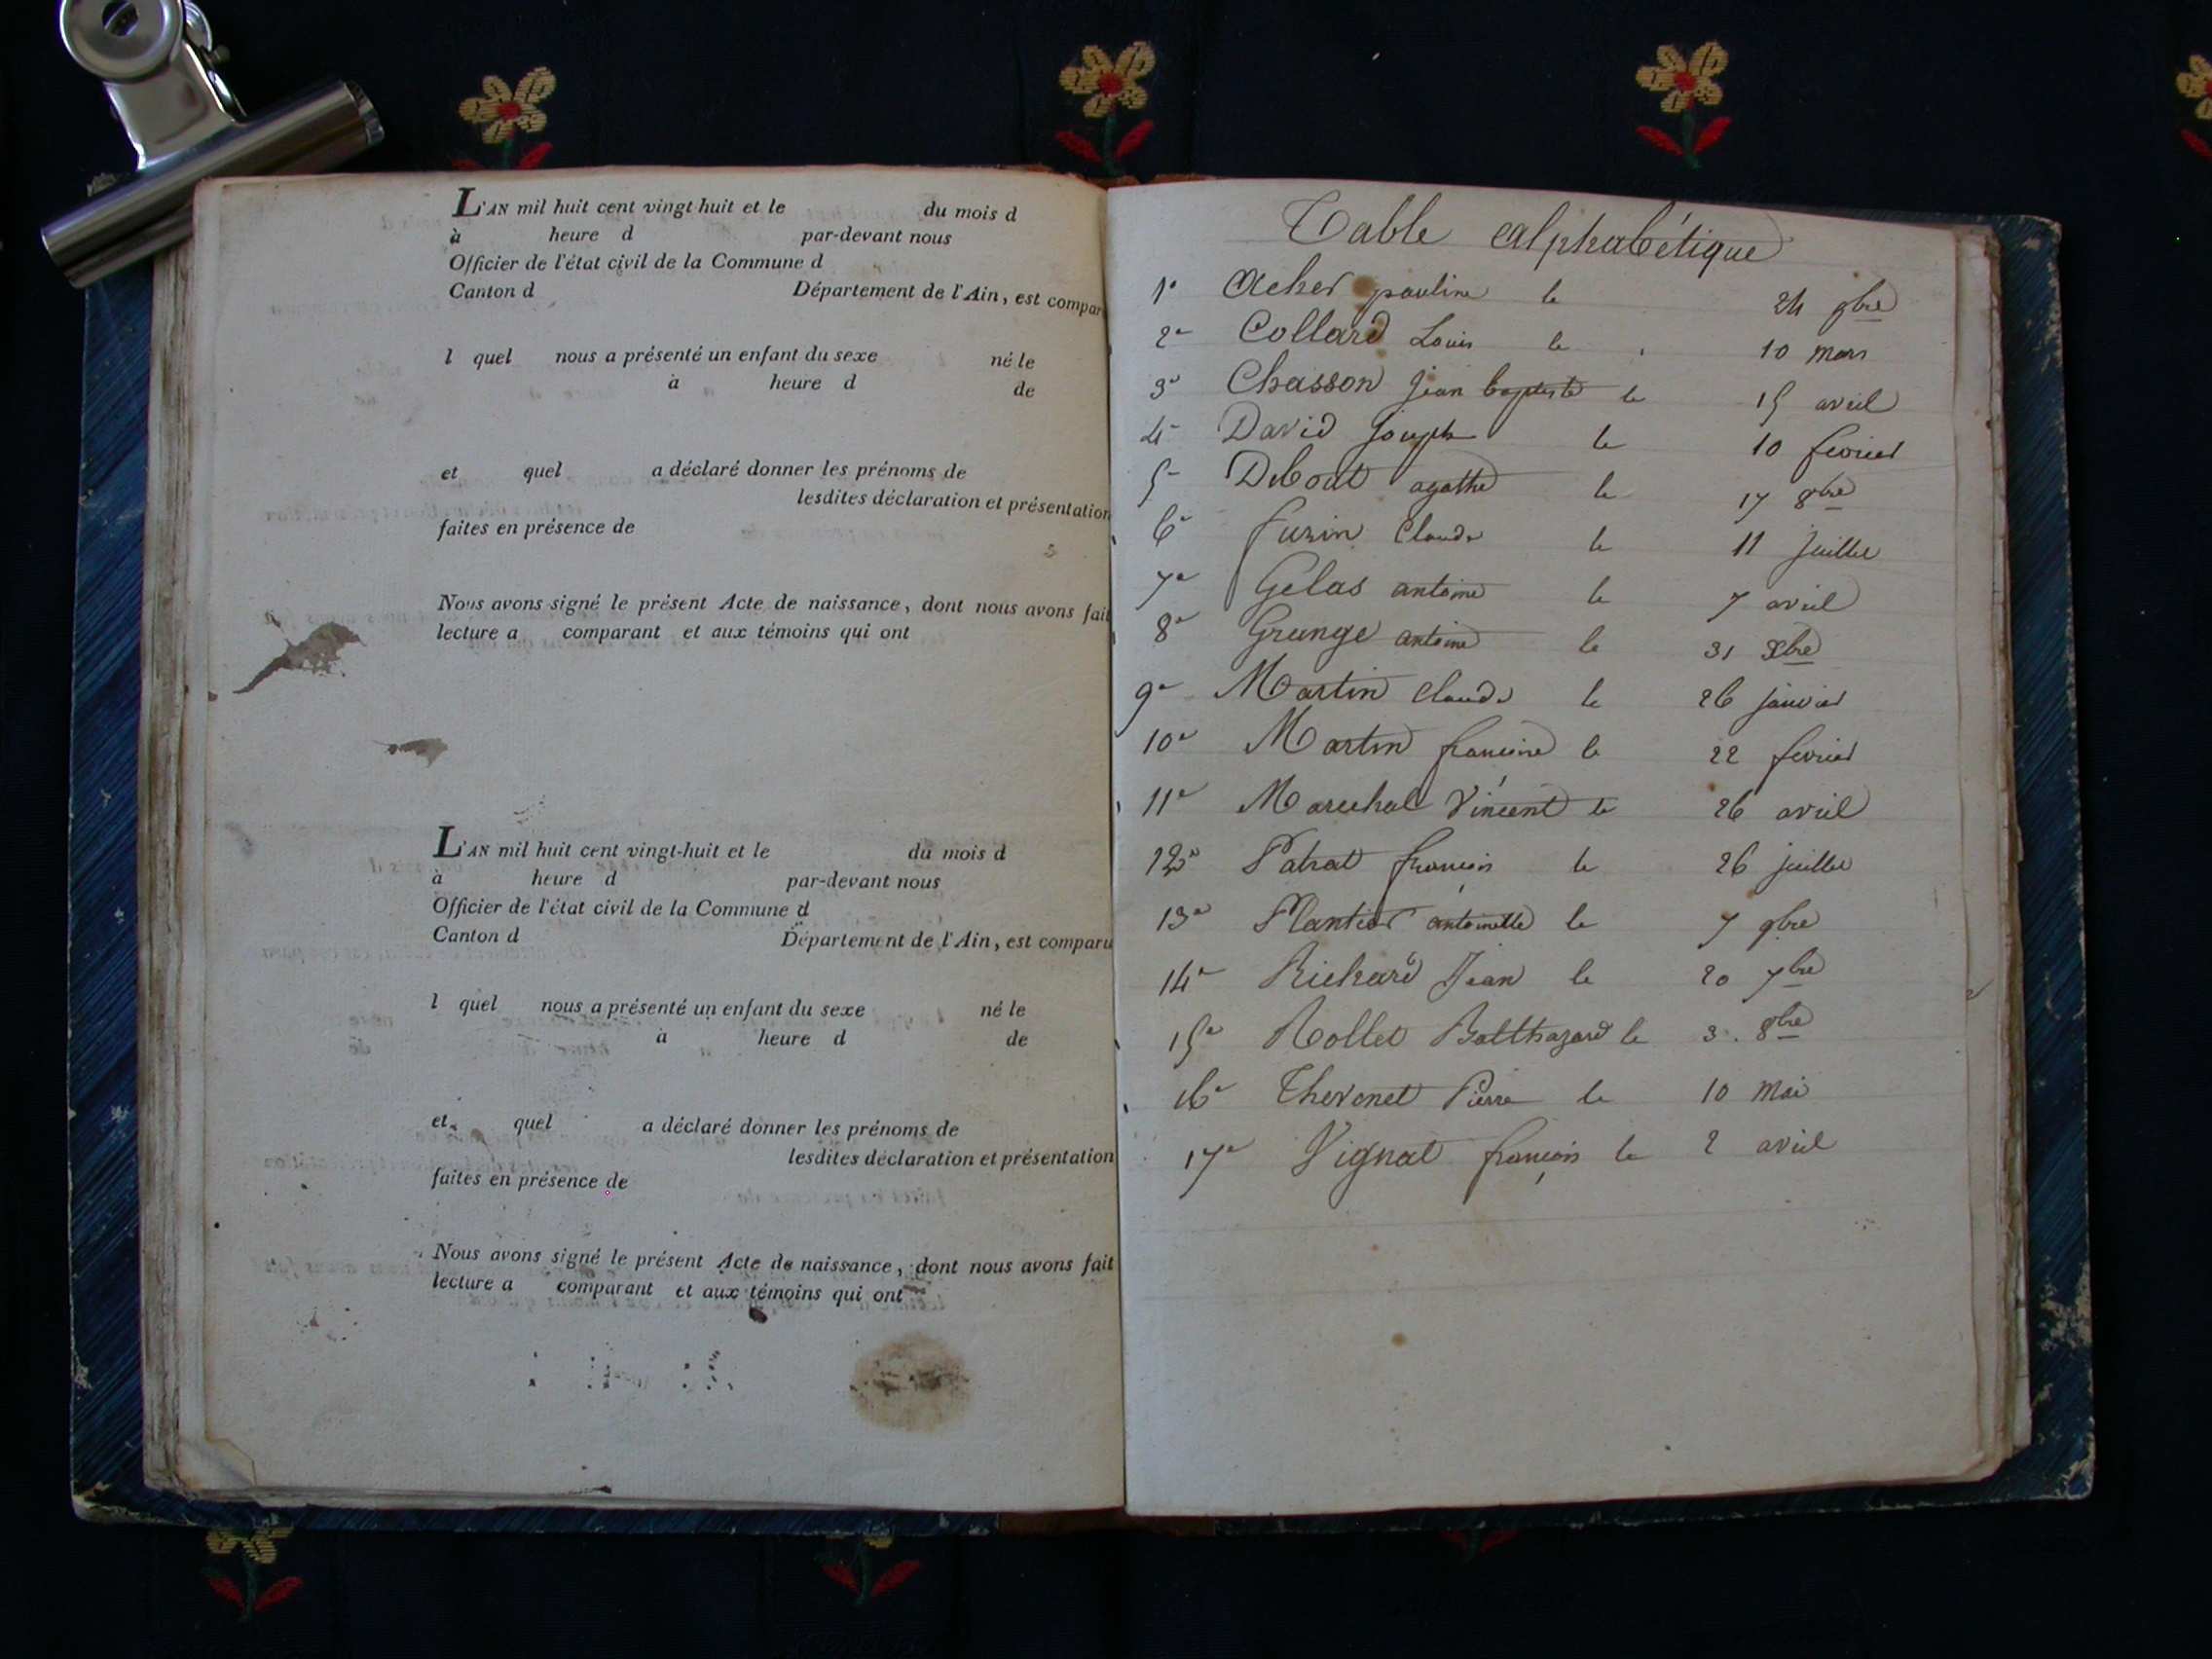 L'AN mil huit cent vingt huit et le du mois d
à heure d par-devant nous
Officier de l'état civil de la Commune d
Canton d Département de l'Ain, est compar
l quel nous a présenté un enfant du sexe né le
à heure d de
et quel a déclaré donner les prénoms de
lesdites déclaration et présentation
faites en présence de
Nous avons signé le présent Acte de naissance, dont nous avons fait
lecture a comparant et aux témoins qui ont
L'AN mil huit cent vingt-huit et le du mois d
à heure d par-devant nous
Officier de l'état civil de la Commune d
Canton d Département de l'Ain, est comparu
l quel nous a présenté un enfant du sexe né le
à heure d de
et quel a déclaré donner les prénoms de
lesdites déclaration et présentation
faites en présence de
Nous avons signé le présent Acte de naissance, dont nous avons fait
lecture a comparant et aux témoins qui ont
Table alphabétique
1° Acher pauline le 24 9bre
2° Collard Louis le 10 mars
3° Chasson Jean baptiste le 15 avril
4° David joseph le 10 fevrier
5° Debout agathe le 17 8bre
6° furin Claude le 11 juillet
7° Gelas antoine le 7 avril
8° Grange antoine le 31 Xbre
9° Martin claude le 26 janvier
10° Martin francoise le 22 fevrier
11° Marechal Vincent le 26 avril
12° Patrat françois le 26 juillet
13° Plantier antoinette le 7 9bre
14° Richard Jean le 20 7bre
15° Rollet Balthazard le 3. 8bre
16° Thevenet Pierre le 10 mai
17° Vignat françois le 2 avril